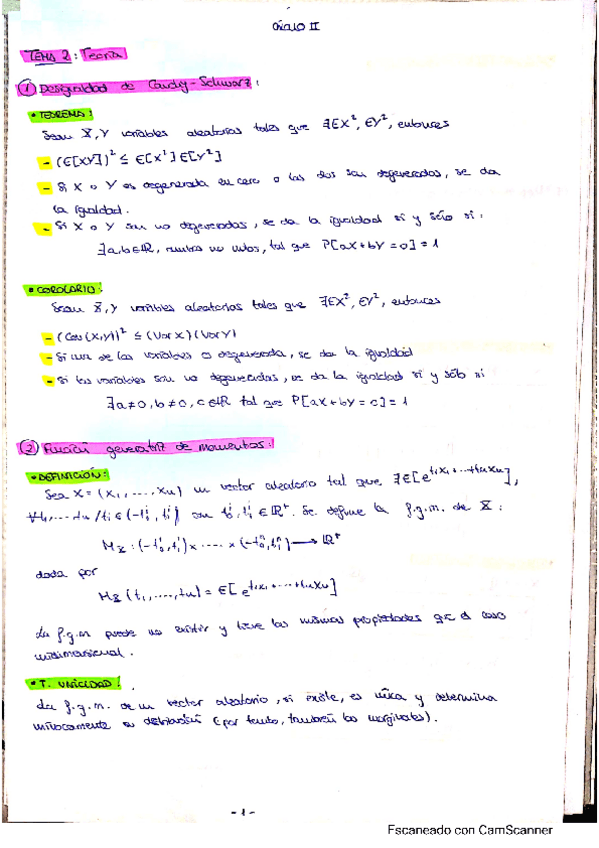 CÁLCULO II
TEMA 2: Teoría
① Desigualdad de Cauchy-Schwarz:
• TEOREMA:
Sean X, Y variables aleatorias tales que ∃EX², EY², entonces
- (E[XY])² ≤ E[X²]E[Y²]
- Si X o Y es degenerada en cero o las dos son degeneradas, se da
la igualdad.
- Si X o Y son no degeneradas, se da la igualdad si y sólo si:
∃a,b∈ℝ, nulos, tal que P[aX+bY=0]=1
• COROLARIO:
Sean X, Y variables aleatorias tales que ∃EX², EY², entonces
- (Cov(X,Y))² ≤ (Var X)(Var Y)
- Si una de las variables es degenerada, se da la igualdad
- Si las variables son no degeneradas, se da la igualdad si y sólo si
∃a≠0, b≠0, c∈ℝ tal que P[aX+bY=c]=1
② Función generatriz de momentos:
• DEFINICIÓN:
Sea X=(X₁,...,Xn) un vector aleatorio tal que ∃E[e^{t₁X₁+...+tnXn}],
∀t₁,...,tn / ti∈(-t₀ⁱ, t₁ⁱ) con t₀ⁱ, t₁ⁱ∈ℝ⁺. Se define la f.g.m. de X:
M_X: (-t₀¹, t₁¹)×....×(-t₀ⁿ, t₁ⁿ) → ℝ⁺
dada por
M_X(t₁,...,tn) = E[e^{t₁X₁+...+tnXn}]
La f.g.m puede no existir y tiene las mismas propiedades que el caso
unidimensional.
• T. UNICIDAD:
La f.g.m. de un vector aleatorio, si existe, es única y determina
unívocamente su distribución (por tanto, también las marginales).
-1-
Escaneado con CamScanner